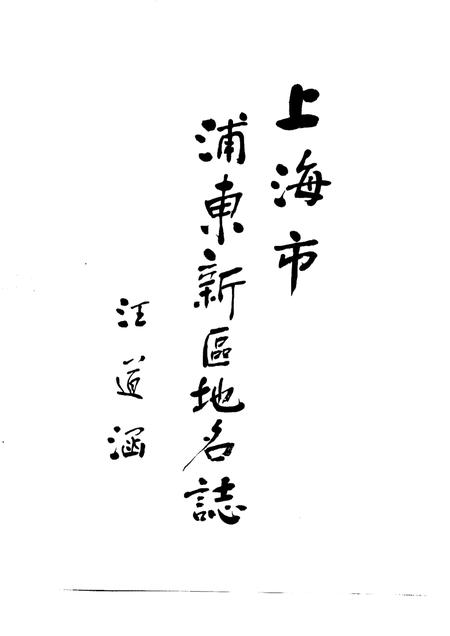 上海市
浦東新區地名誌
汪道涵